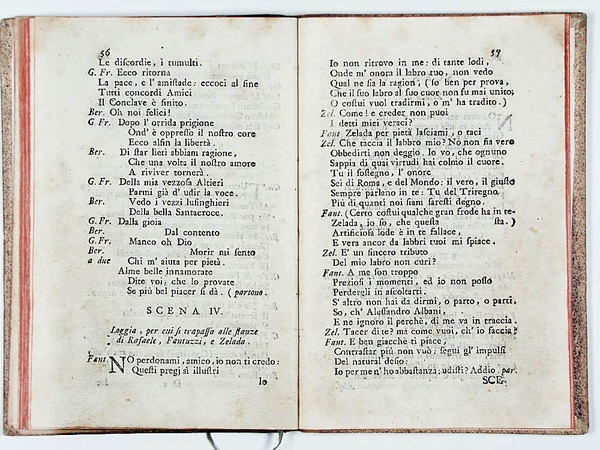 56
Le discordie, i tumulti.
G. Fr. Ecco ritorna
La pace, e l' amistade: eccoci al fine
Tutti concordi Amici
Il Conclave è finito.
Ber. Oh noi felici!
G Fr. Dopo l' orrida prigione
Ond' è oppresso il nostro core
Ecco alfin la libertà.
Ber. Di star lieti abbiam ragione,
Che una volta il nostro amore
A riviver tornerà.
G. Fr. Della mia vezzosa Altieri
Parmi già d' udir la voce.
Ber. Vedo i vezzi lusinghieri
Della bella Santacroce.
G. Fr. Dalla gioia
Ber. Dal contento
G. Fr. Manco oh Dio
Ber. Morir mi sento
a due Chi m' aiuta per pietà.
Alme belle innamorate
Dite voi, che lo provate
Se più bel piacer si dà. (partono.
SCENA IV.
Loggia, per cui si trapassa alle stanze
di Rafaele, Fantuzzi, e Zelada.
Fant. NO perdonami, amico, io non ti credo:
Questi pregj sì illustri
Io
57
Io non ritrovo in me: di tante lodi,
Onde m' onora il labro tuo, non vedo
Qual ne sia la ragion, (so ben per prova,
Che il suo labro al suo cuor non fu mai unito;
O costui vuol tradirmi, o m' ha tradito.)
Zel. Come! e creder non puoi
I detti miei veraci?
Fant Zelada per pietà lasciami, o taci
Zel. Che taccia il labbro mio? No non fia vero
Obbedirti non deggio. Io vo, che ognuno
Sappia di quai virtudi hai colmo il cuore.
Tu il sostegno, l' onore
Sei di Roma, e del Mondo: il vero, il giusto
Sempre parlano in te: Tu del Triregno
Più di quanti noi siani saresti degno.
Fant. (Certo costui qualche gran frode ha in te-
Zelada, io so, che questa sta.)
Artificiosa lode è in te fallace,
E vera ancor da labbri tuoi mi spiace.
Zel. E' un sincero tributo
Del mio labro non curi?
Fant. A me son troppo
Preziosi i momenti, ed io non posso
Perdergli in ascoltarti.
S' altro non hai da dirmi, o parto, o parti.
So, ch' Alessandro Albani,
E ne ignoro il perchè, di me va in traccia.
Zel. Tacer di te? ma come vuoi, ch' io faccia?
Fant. E ben giacchè ti piace,
Contrastar più non vuò: segui gl' impulsi
Del natural desìo:
Io per me n' ho abbastanza; udisti? Addio. par.
SCE-